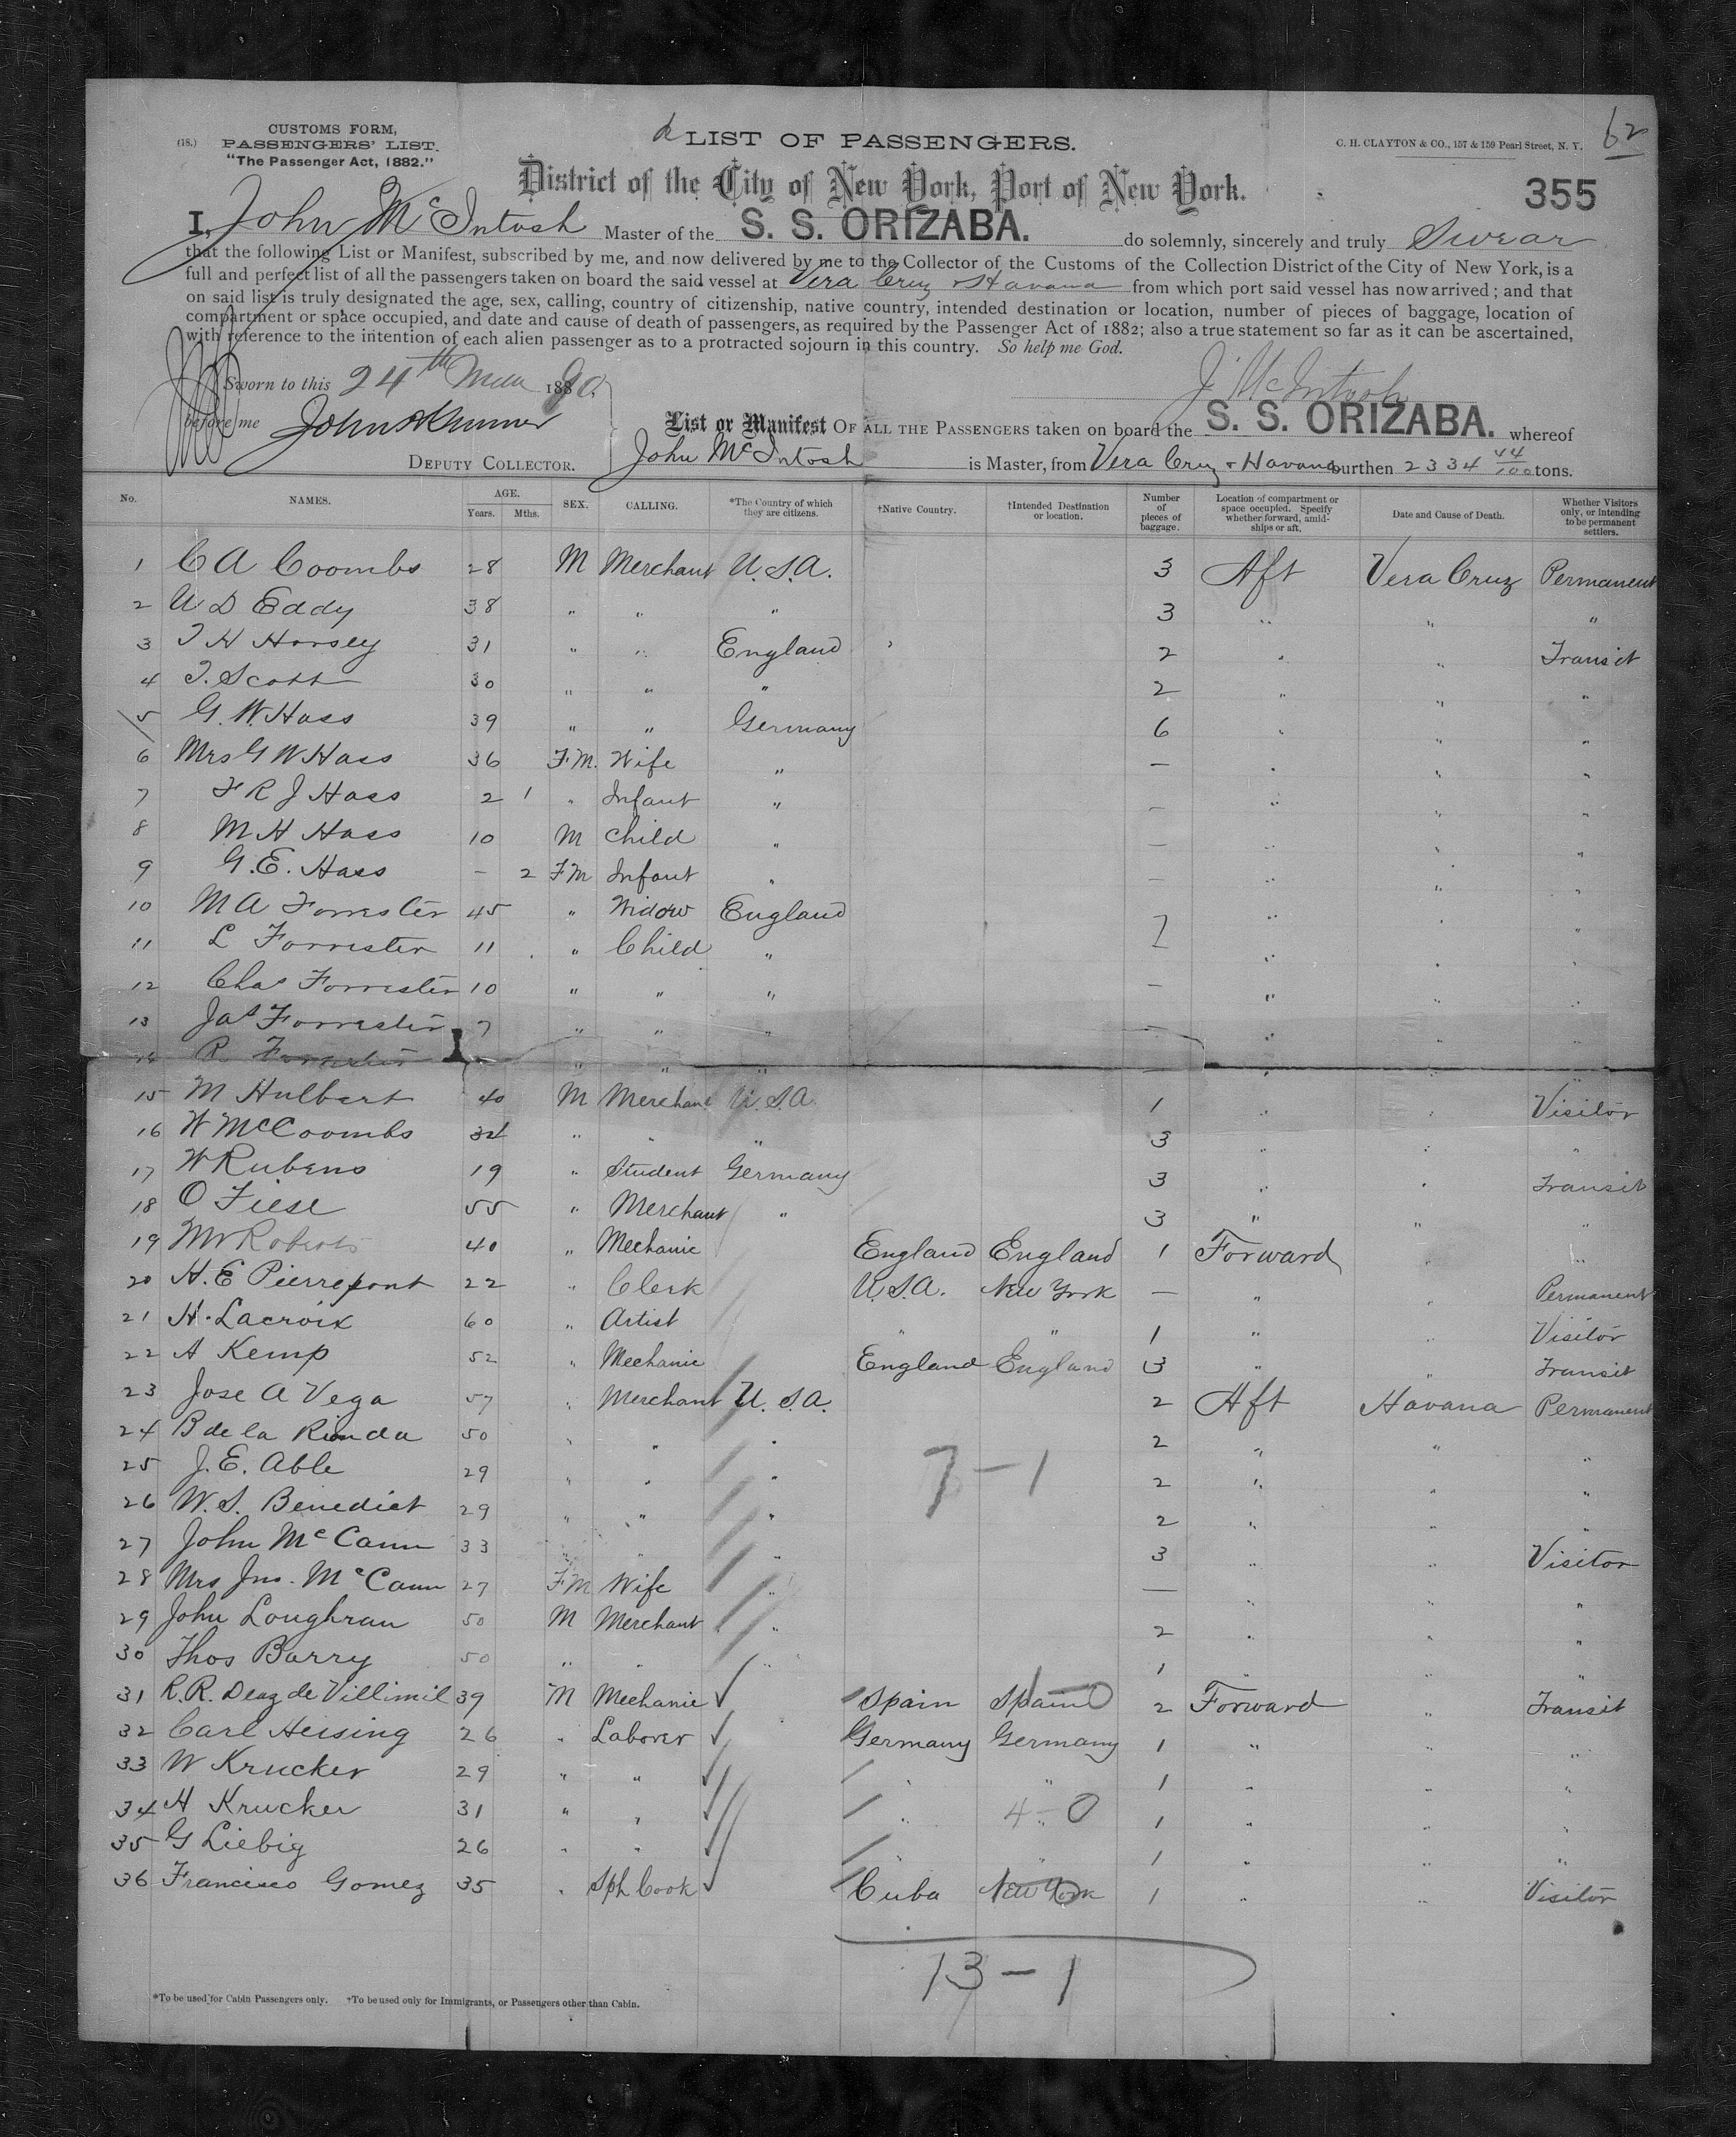 62
(18.) CUSTOMS FORM,
PASSENGERS' LIST.
"The Passenger Act, 1882."
LIST OF PASSENGERS.
C. H. CLAYTON & CO., 157 & 159 Pearl Street, N. Y.
District of the City of New York, Port of New York.
355
I, John McIntosh Master of the S. S. ORIZABA. do solemnly, sincerely and truly Swear
that the following List or Manifest, subscribed by me, and now delivered by me to the Collector of the Customs of the Collection District of the City of New York, is a
full and perfect list of all the passengers taken on board the said vessel at Vera Cruz + Havana from which port said vessel has now arrived; and that
on said list is truly designated the age, sex, calling, country of citizenship, native country, intended destination or location, number of pieces of baggage, location of
compartment or space occupied, and date and cause of death of passengers, as required by the Passenger Act of 1882; also a true statement so far as it can be ascertained,
with reference to the intention of each alien passenger as to a protracted sojourn in this country. So help me God.
Sworn to this 24th 1890
J McIntosh
before me
DEPUTY COLLECTOR.
List or Manifest OF ALL THE PASSENGERS taken on board the S. S. ORIZABA. whereof
John McIntosh is Master, from Vera Cruz + Havana burthen 2334 44/100 tons.
No. NAMES. AGE. Years. Mths. SEX. CALLING. *The Country of which they are citizens. †Native Country. †Intended Destination or location. Number of pieces of baggage. Location of compartment or space occupied. Specify whether forward, amidships or aft. Date and Cause of Death. Whether Visitors only, or intending to be permanent settlers.
1 C A Coombs 28 M Merchant U.S.A. 3 Aft Vera Cruz Permanent
2 W D Eddy 38 " " " 3 " " "
3 T H Horsey 31 " " England 2 " " Transit
4 T. Scott 30 " " " 2 " " "
5 G. W. Hass 39 " " Germany 6 " " "
6 Mrs G W Hass 36 F.M. Wife " — " " "
7 F R J Hass 2 1 " Infant " — " " "
8 M H Hass 10 M Child " — " " "
9 G. E. Hass — 2 F M Infant " — " " "
10 M A Forrester 45 " Widow England 7 " " "
11 L Forrester 11 " Child " " " "
12 Chas Forrester 10 " " " — " " "
13 Jas Forrester 7 " " " — " " "
14 R Forrester " " " — " " "
15 M Hulbert 40 M Merchant U.S.A. 1 " " Visitor
16 W McCoombs 34 " " " 3 " " "
17 W Rubens 19 " Student Germany 3 " " Transit
18 O Fiese 55 " Merchant " 3 " " "
19 Mr Roberts 40 " Mechanic England England 1 Forward " "
20 H. E Pierrepont 22 " Clerk U.S.A. New York — " " Permanent
21 H. Lacroix 60 " Artist " " 1 " " Visitor
22 A Kemp 52 " Mechanic England England 3 " " Transit
23 Jose A Vega 57 " Merchant U.S.A. 2 Aft Havana Permanent
24 B de la Rionda 50 " " " 2 " " "
25 J. E. Able 29 " " " 2 " " "
7 — 1
26 W. S. Benedict 29 " " " 2 " " "
27 John McCann 33 " " " 3 " " Visitor
28 Mrs Jno. McCann 27 F M Wife " — " " "
29 John Loughran 50 M Merchant " 2 " " "
30 Thos Barry 50 " " " 1 " " "
31 R. R. Deaz de Villimil 39 M Mechanic Spain Spain 2 Forward " Transit
32 Carl Heising 26 " Laborer Germany Germany 1 " " "
33 W Krucker 29 " " " " 1 " " "
34 H Krucker 31 " " " " 1 " " "
4 - 0
35 G Liebig 26 " " " " 1 " " "
36 Francisco Gomez 35 " Cook Cuba New York 1 " " Visitor
13 — 1
*To be used for Cabin Passengers only. †To be used only for Immigrants, or Passengers other than Cabin.